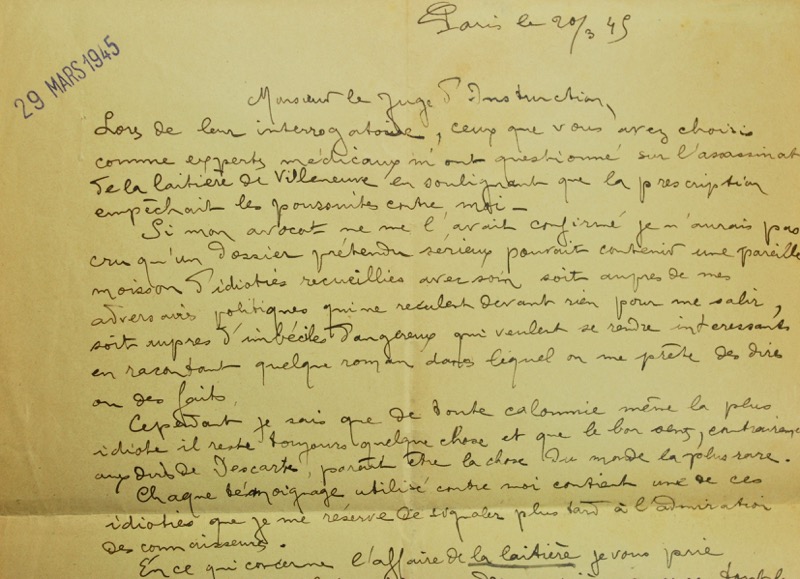 Paris le 20/3 45
29 MARS 1945
Monsieur le Juge d'Instruction,
Lors de leur interrogatoire, ceux que vous avez choisis
comme experts médicaux m'ont questionné sur l'assassinat
de la laitière de Villeneuve en soulignant que la prescription
empêchait les poursuites contre moi –
Si mon avocat ne me l'avait confirmé je n'aurais pas
cru qu'un dossier prétendu sérieux pouvait contenir une pareille
moisson d'idioties recueillies avec soin soit aupres de mes
adversairs politiques qui ne reculent devant rien pour me salir,
soit aupres d'imbéciles dangereux qui veulent se rendre interessants
en racontant quelque roman dans lequel on me prête des dires
ou des faits.
Cependant je sais que de toute calomnie même la plus
idiote il reste toujours quelque chose et que le bon sens, contrairement
aux dires de Descartes, paraît être la chose du monde la plus rare.
Chaque témoignage utilisé contre moi contient une de ces
idioties que je me réserve de signaler plus tard à l'admiration
des connaisseurs.
En ce qui concerne l'affaire de la laitière je vous prie